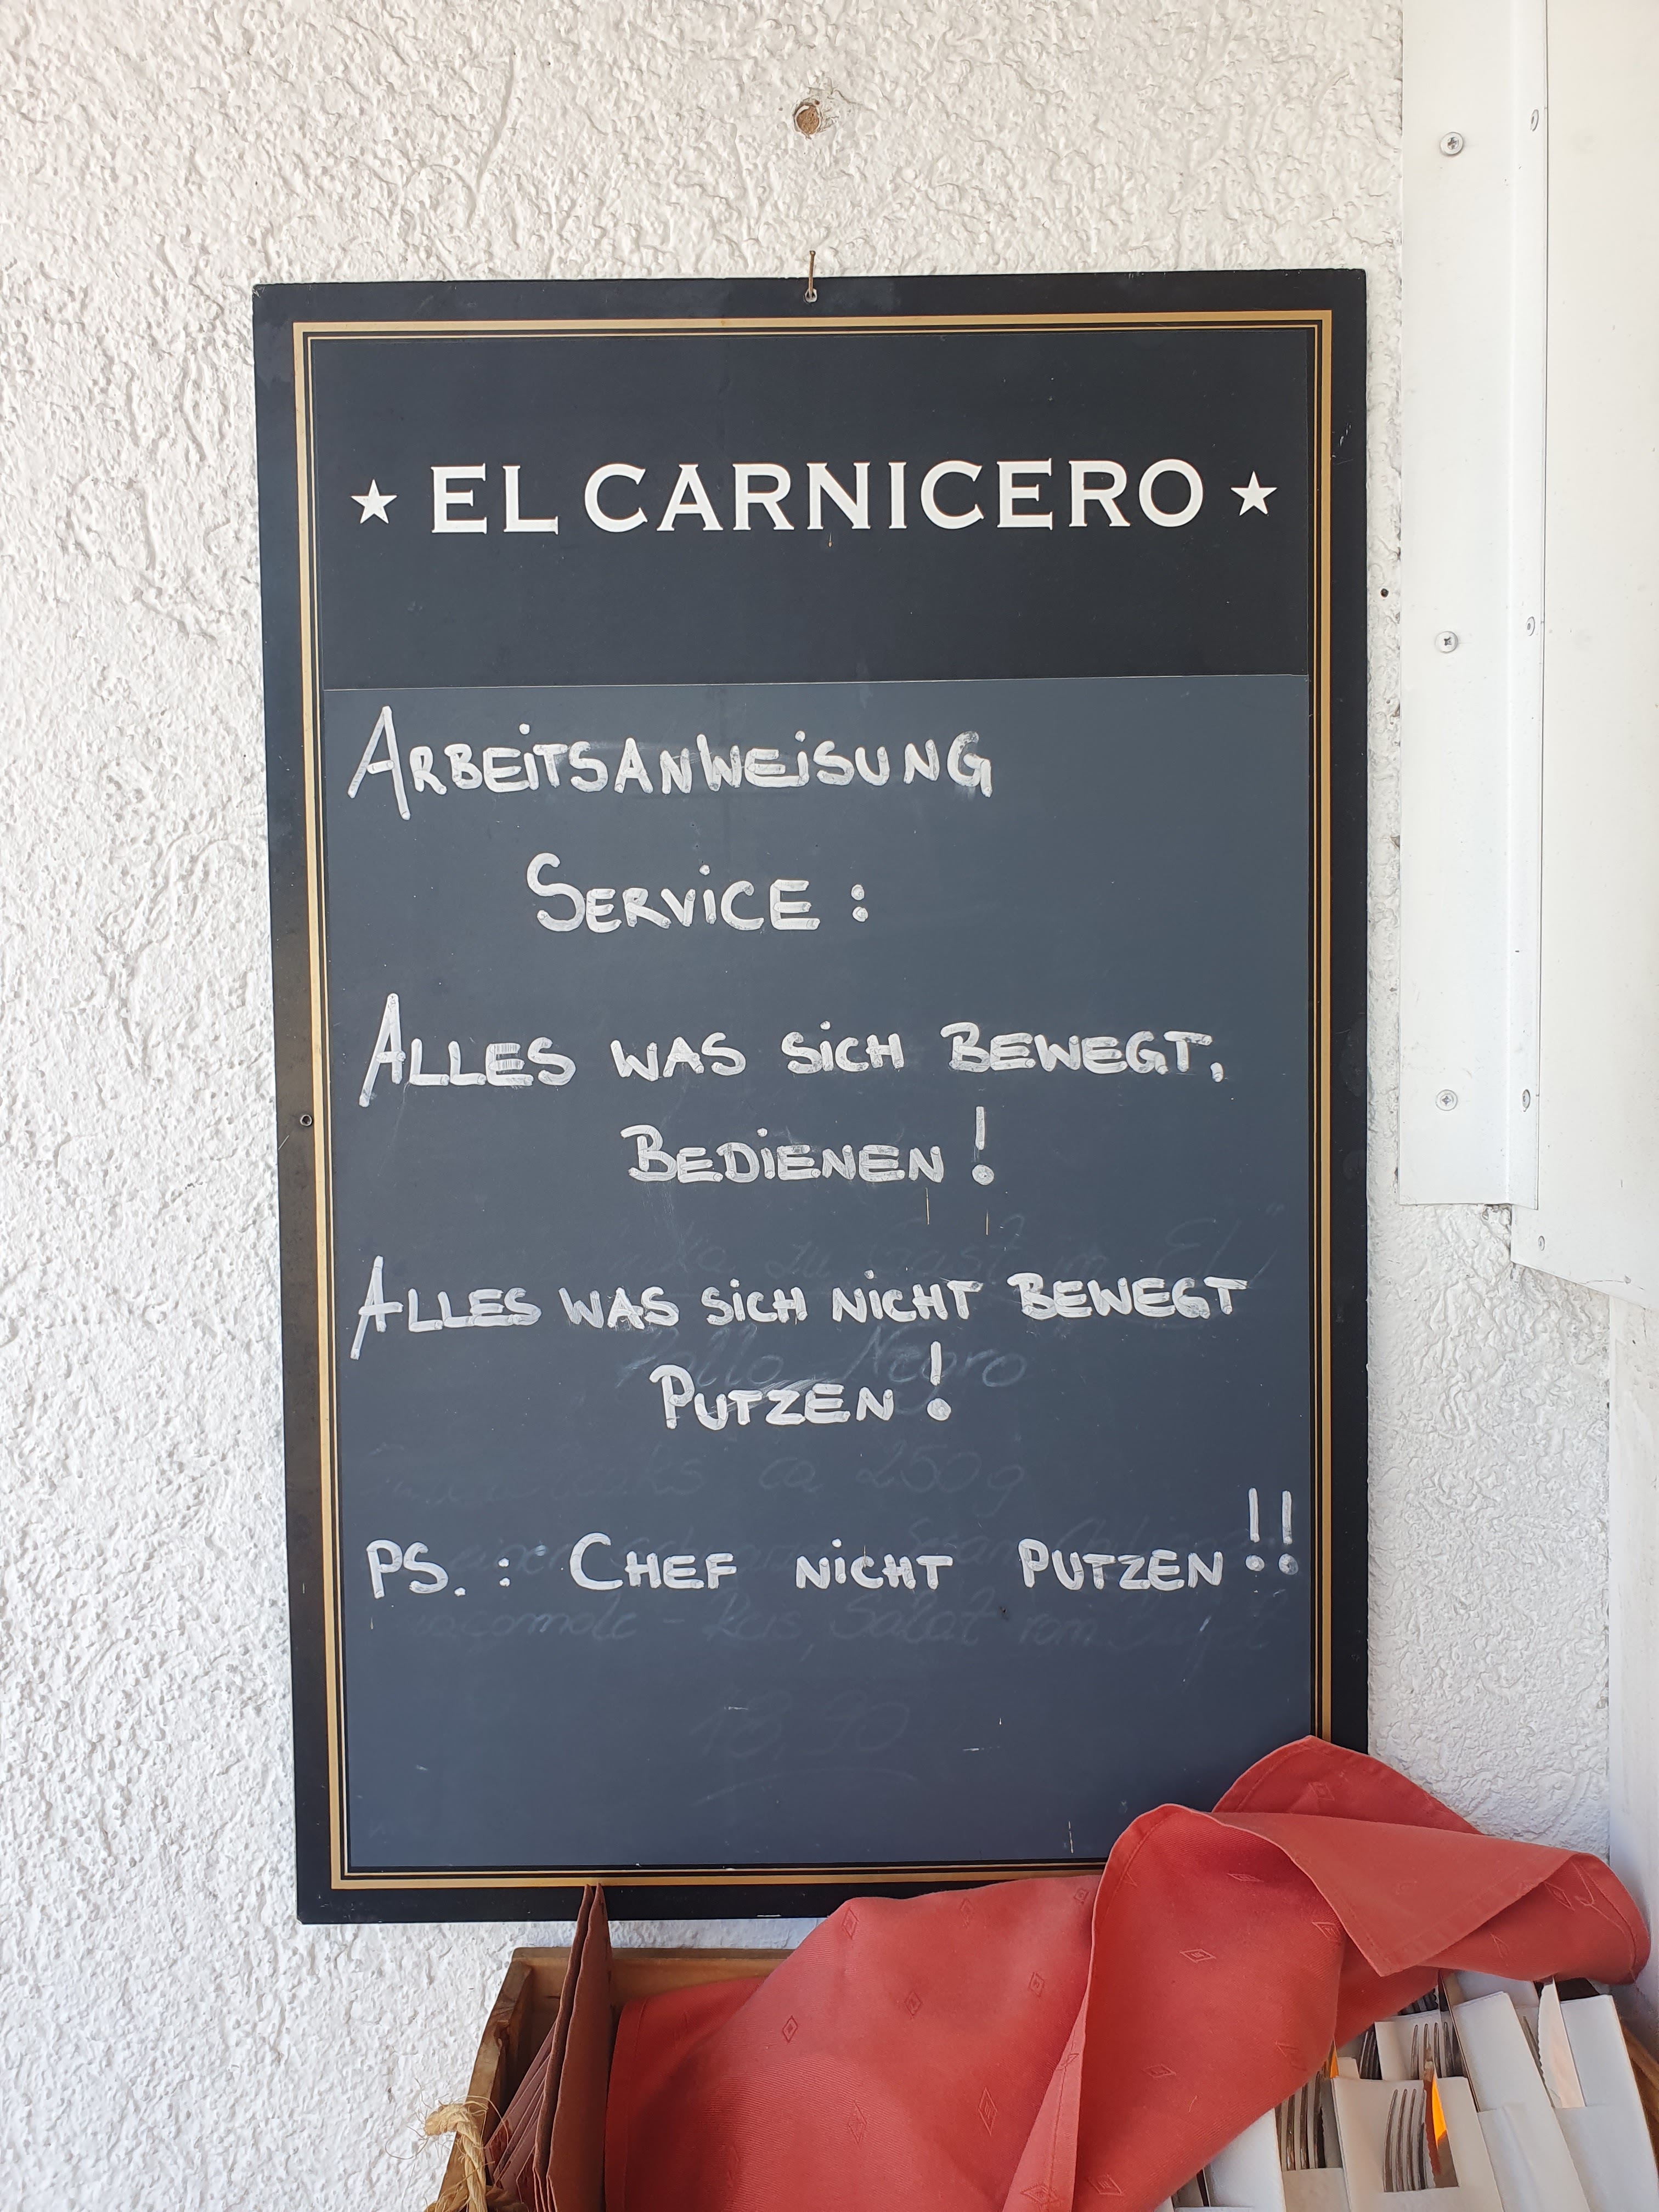 ★ EL CARNICERO ★
ARBEITSANWEISUNG
SERVICE :
ALLES WAS SICH BEWEGT,
BEDIENEN !
ALLES WAS SICH NICHT BEWEGT
Pollo Negro
PUTZEN !
ca 250g
PS. : CHEF NICHT PUTZEN !!
Salat